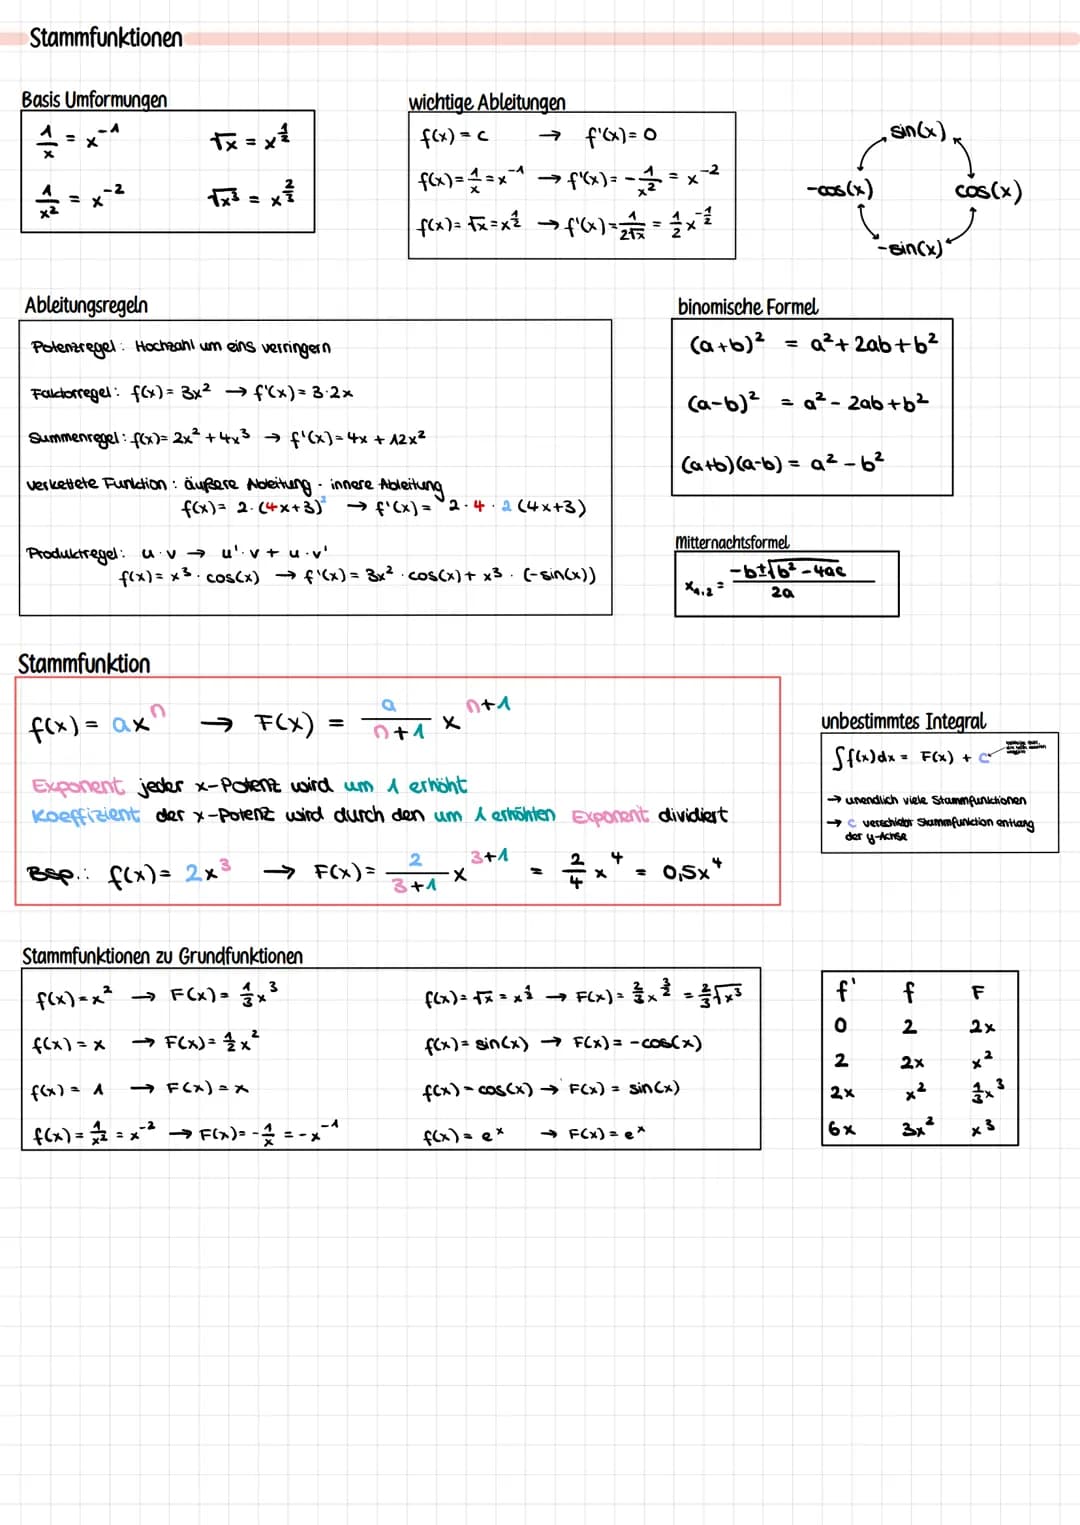 Stammfunktionen
Basis Umformungen
1/x = x⁻¹
√x = x^(1/2)
1/x² = x⁻²
√x³ = x^(2/3)
wichtige Ableitungen
f(x) = c → f'(x) = 0
f(x) = 1/x = x⁻¹ → f'(x) = -1/x² = x⁻²
f(x) = √x = x^(1/2) → f'(x) = 1/(2√x) = 1/2 x^(-1/2)
sin(x)
-cos(x)
cos(x)
-sin(x)
Ableitungsregeln
Potenzregel: Hochzahl um eins verringern
Faktorregel: f(x) = 3x² → f'(x) = 3·2x
Summenregel: f(x) = 2x² + 4x³ → f'(x) = 4x + 12x²
verkettete Funktion: äußere Ableitung · innere Ableitung
f(x) = 2·(4x+3)² → f'(x) = 2·4·2(4x+3)
Produktregel: u·v → u'·v + u·v'
f(x) = x³·cos(x) → f'(x) = 3x²·cos(x) + x³·(-sin(x))
binomische Formel
(a+b)² = a² + 2ab + b²
(a-b)² = a² - 2ab + b²
(a+b)(a-b) = a² - b²
Mitternachtsformel
x₁,₂ = (-b±√(b²-4ac))/(2a)
Stammfunktion
f(x) = axⁿ → F(x) = a/(n+1) x^(n+1)
Exponent jeder x-Potenz wird um 1 erhöht
Koeffizient der x-Potenz wird durch den um 1 erhöhten Exponent dividiert
Bsp.: f(x) = 2x³ → F(x) = 2/(3+1) x^(3+1) = 2/4 x⁴ = 0,5x⁴
unbestimmtes Integral
∫f(x)dx = F(x) + c
→ unendlich viele Stammfunktionen
→ c verschiebt Stammfunktion entlang
der y-Achse
Stammfunktionen zu Grundfunktionen
f(x) = x² → F(x) = 1/3 x³
f(x) = x → F(x) = 1/2 x²
f(x) = 1 → F(x) = x
f(x) = 1/x² = x⁻² → F(x) = -1/x = -x⁻¹
f(x) = √x = x^(1/2) → F(x) = 2/3 x^(3/2) = 2/3 √x³
f(x) = sin(x) → F(x) = -cos(x)
f(x) = cos(x) → F(x) = sin(x)
f(x) = eˣ → F(x) = eˣ
f' f F
0 2 2x
2 2x x²
2x x² 1/3 x³
6x 3x² x³